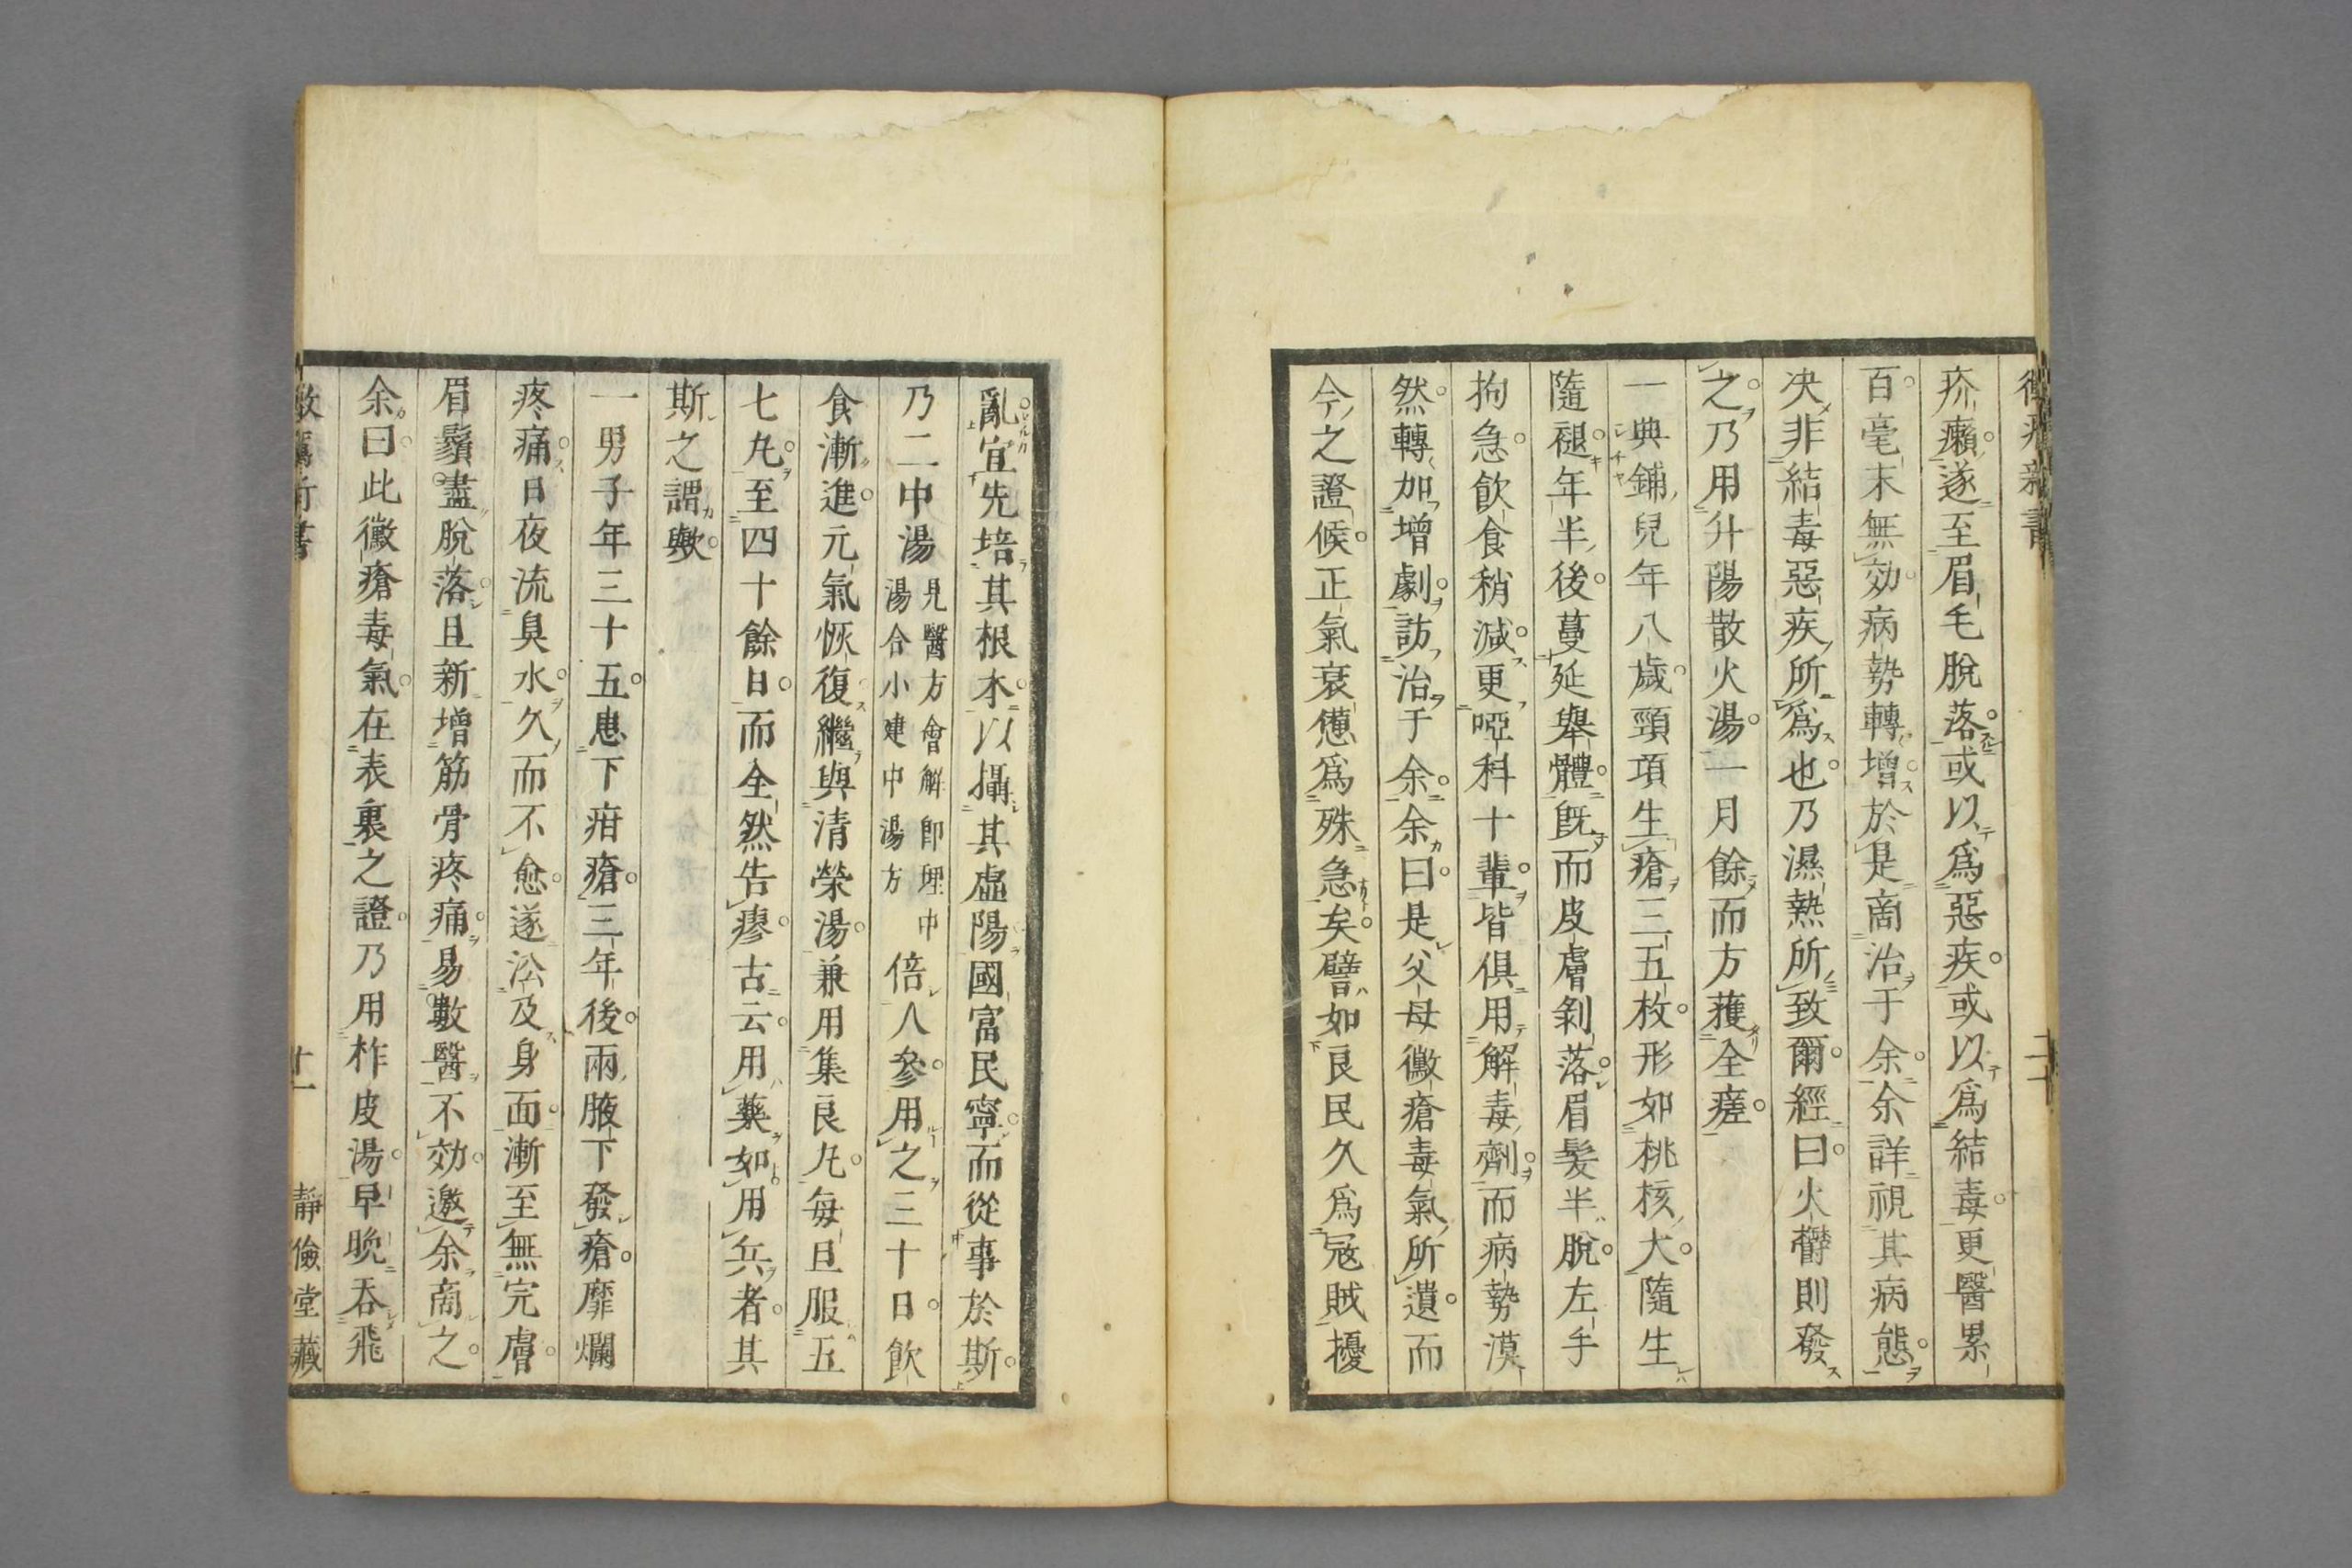 疥癩遂至眉毛脫落或以爲惡疾或以爲結毒更醫累
百毫末無効病勢轉增於是啇治于余余詳視其病態
决非結毒惡疾所爲也乃濕熱所致爾經曰火鬱則發
之乃用升陽散火湯一月餘而方蕥全瘥
一典鋪兒年八歲頸項生瘡三五枚形如桃核大隨生
隨褪年半後蔓延舉體旣而皮膚剝落眉髮半脫左手
拘急飮食稍減更啞科十輩皆俱用解毒劑而病勢漠
然轉加增劇訪治于余余曰是父母黴瘡毒氣所遺而
今之證候正氣衰憊爲殊急矣譬如良民久爲冦賊擾
亂宜先培其根本以攝其虛陽國富民寧而從事於斯
乃二中湯見醫方會解卽理中湯合小建中湯方倍人參用之三十日飮
食漸進元氣恢復繼與清榮湯兼用集良丸每旦服五
七丸至四十餘日而全然告瘳古云用藥如用兵者其
斯之謂歟
一男子年三十五患下疳瘡三年後兩腋下發瘡靡爛
疼痛日夜流臭水久而不愈遂㳂及身面漸至無完膚
眉鬚盡脫落且新增筋骨疼痛易數醫不効邀余啇之
余曰此黴瘡毒氣在表裏之證乃用柞皮湯早晚吞飛
十一
靜儉堂藏